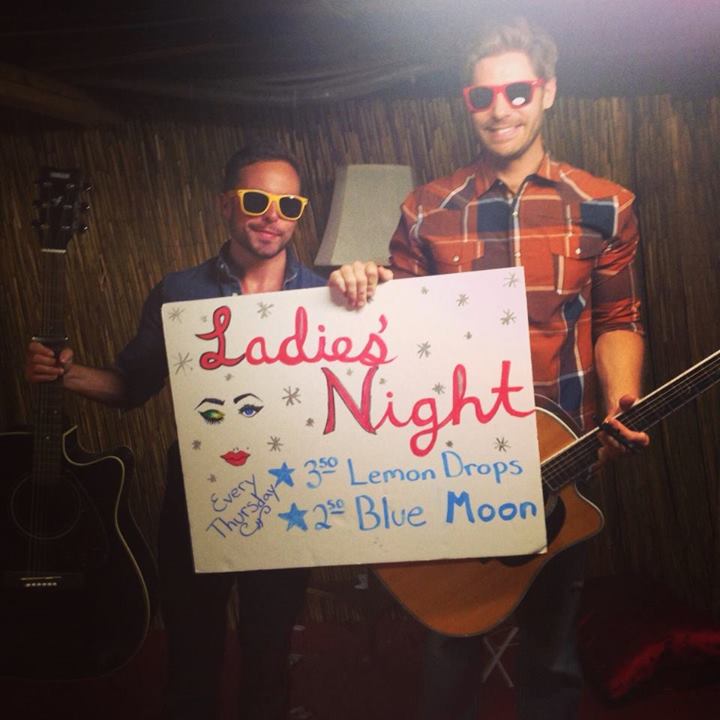 Ladies'
Night
Every
Thursday
★ 3.50 Lemon Drops
★ 2.50 Blue Moon